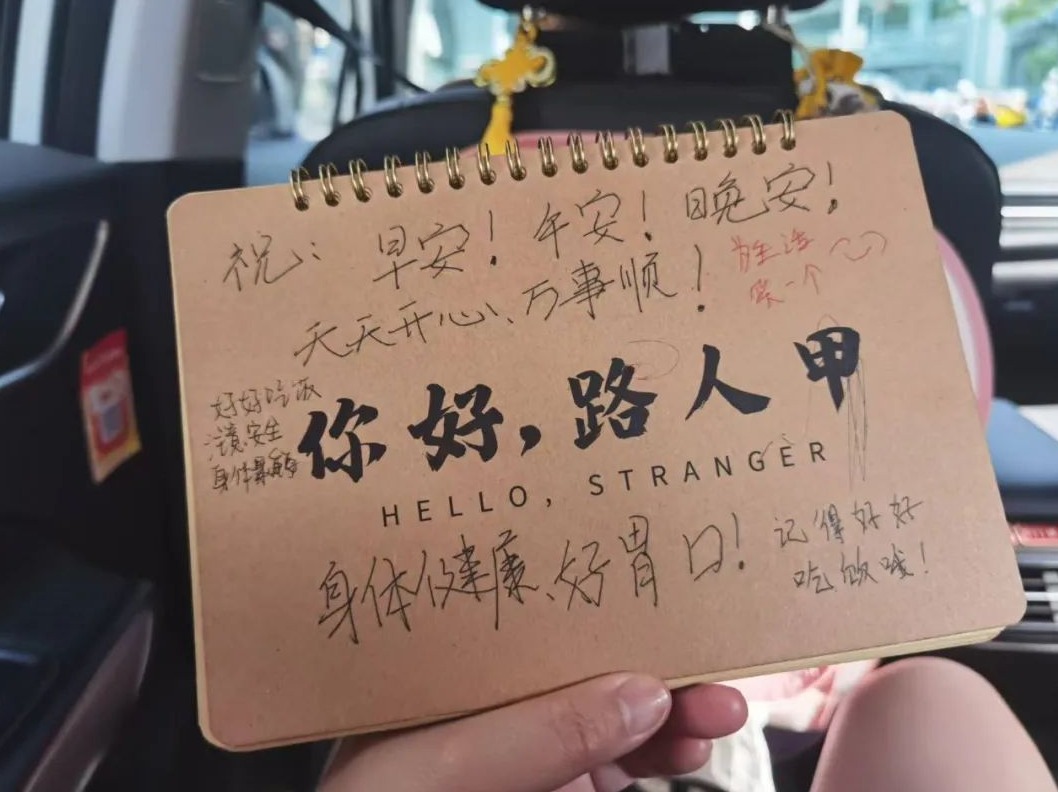 祝：早安！午安！晚安！
天天开心、万事顺！
好好吃饭
注意安全
身体健康
你好，路人甲
HELLO, STRANGER
身体健康、好胃口！
记得好好
吃饭哦！